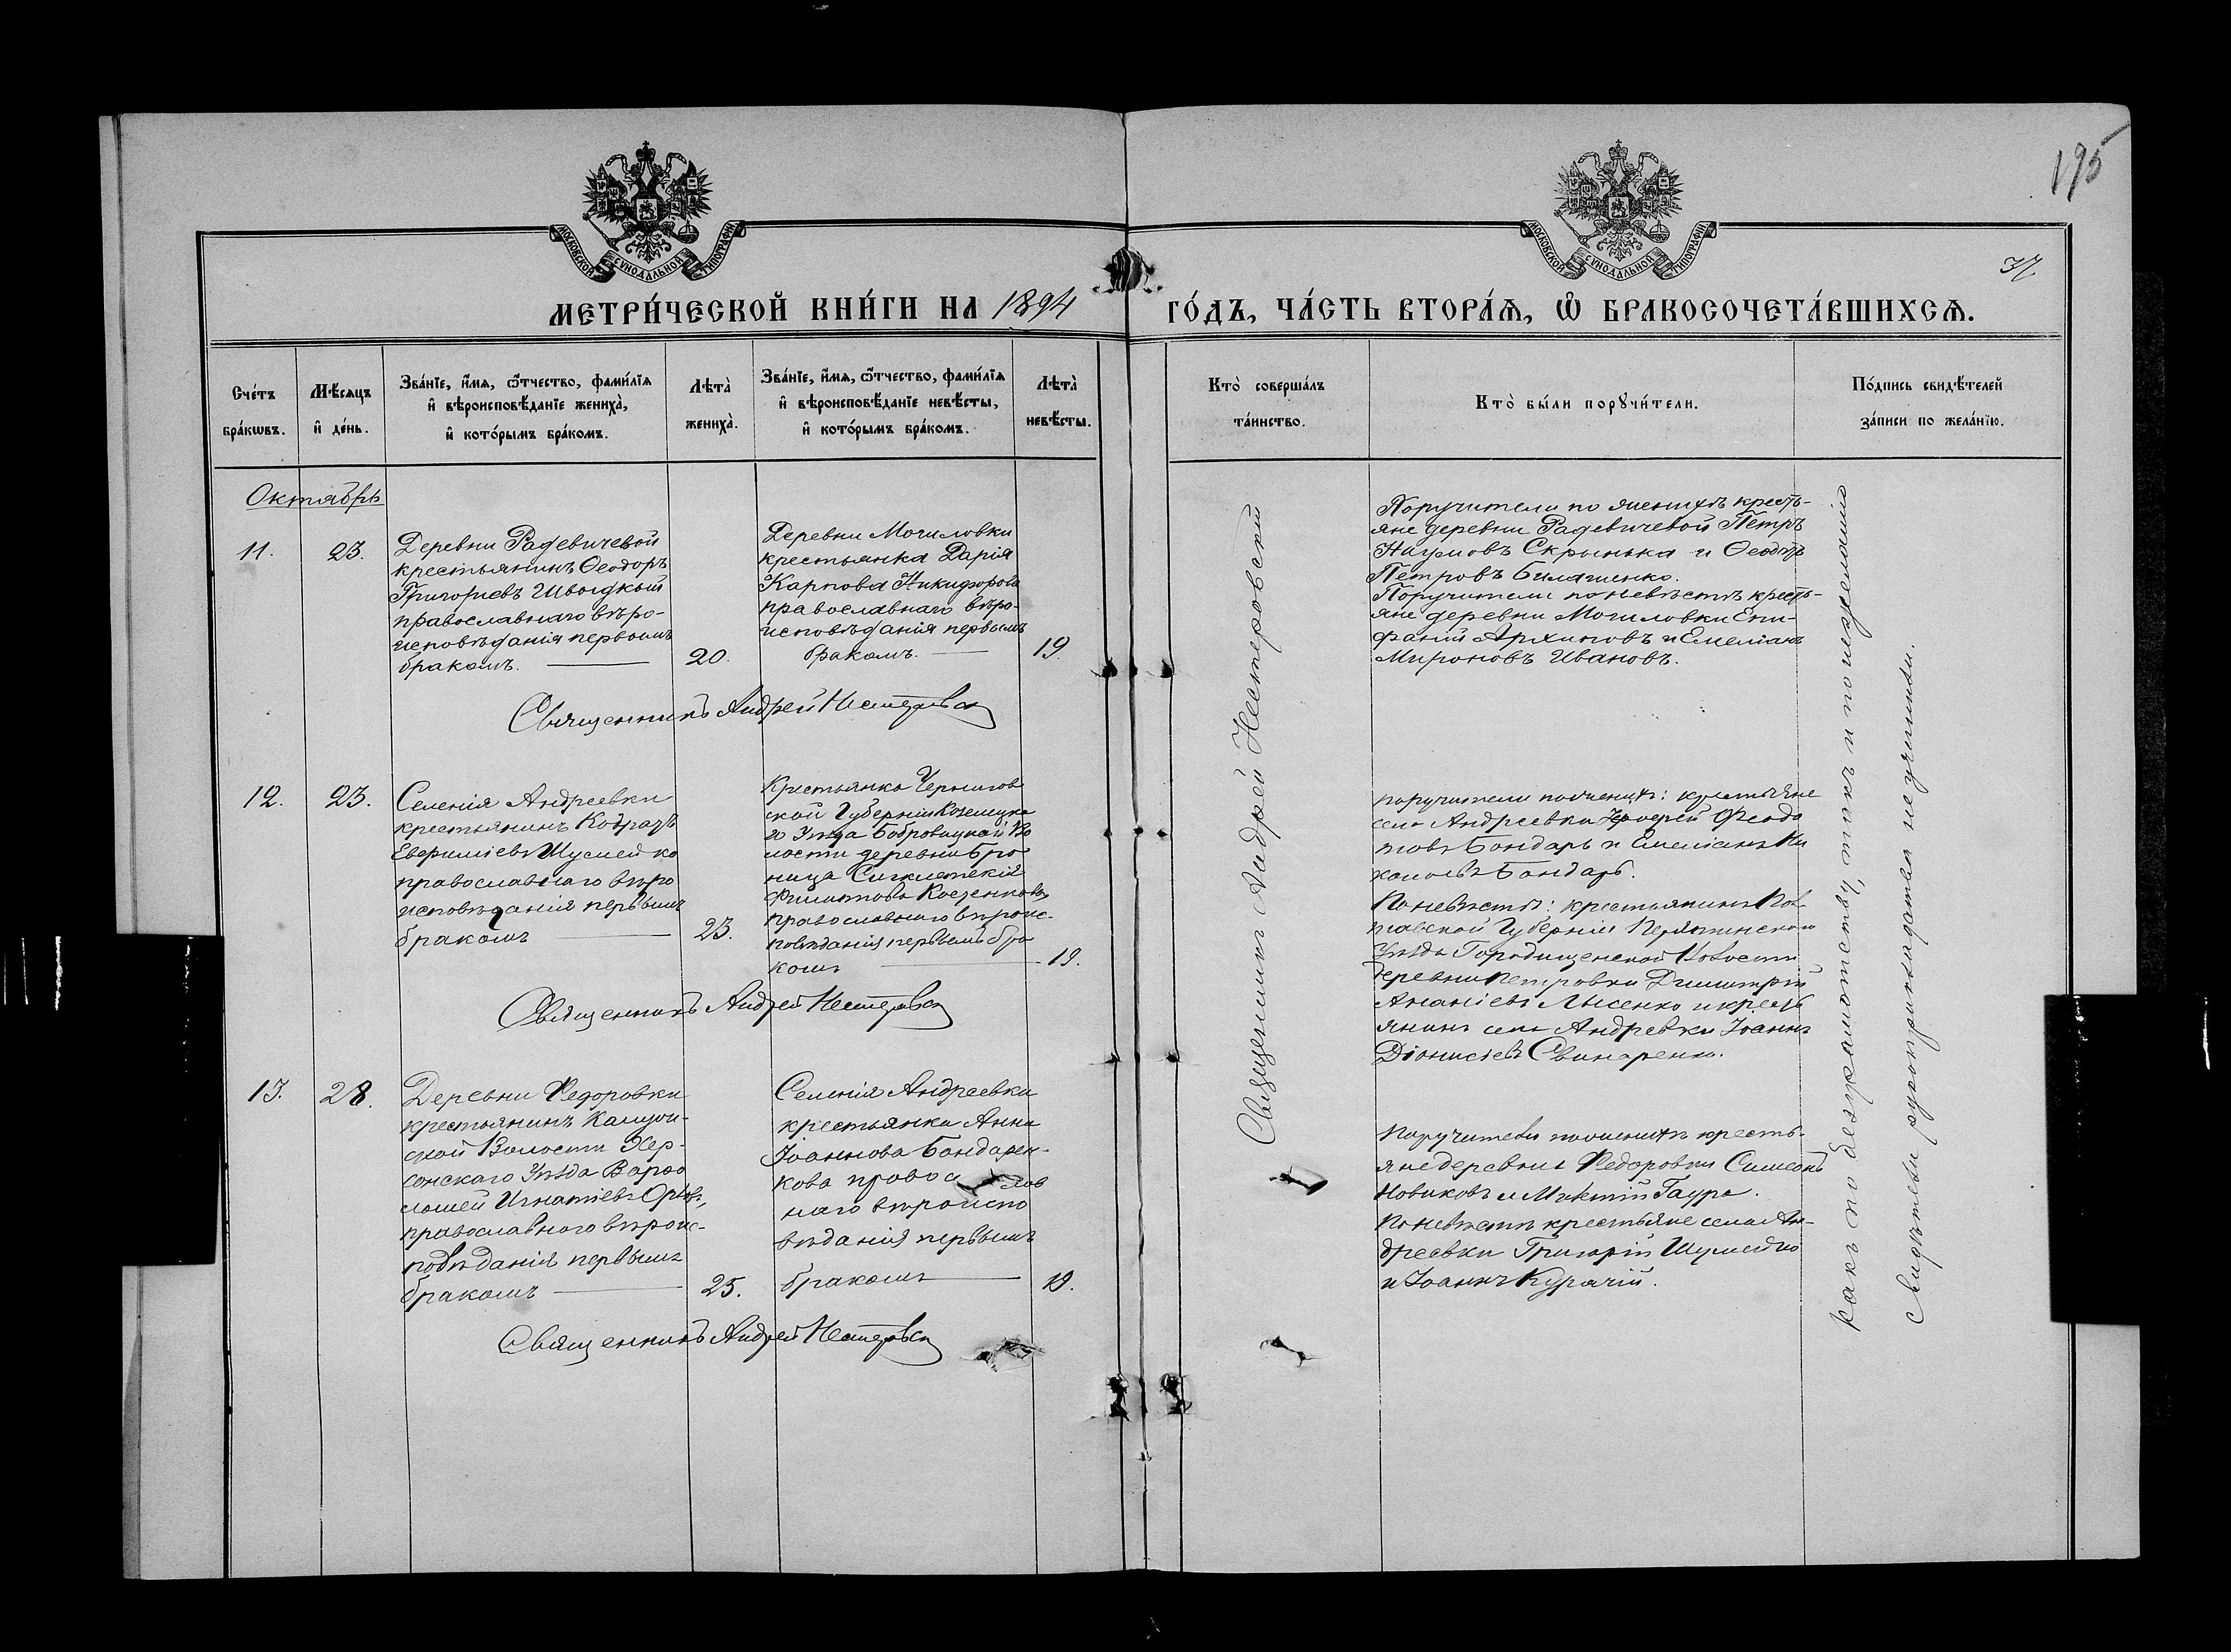 195
37
МОСКОВСКОЙ СУНОДАЛЬНОЙ ТИПОГРАФІИ
МОСКОВСКОЙ СУНОДАЛЬНОЙ ТИПОГРАФІИ
МЕТРИ́ЧЕСКОЙ КНИ́ГИ НА 1894 ГО́ДЪ, ЧА́СТЬ ВТОРА́Ѧ, Ѽ БРАКОСОЧЕТА́ВШИХСѦ.
Сче́тъ
бра́кѡвъ.
Мѣ́сяцъ
и҆ де́нь.
Зва́нїе, и҆́мѧ, ѻ҆́тчество, фами́лїѧ
и҆ вѣроисповѣ́данїе жениха̀,
и҆ кото́рымъ бра́комъ.
Лѣта̀
жениха̀.
Зва́нїе, и҆́мѧ, ѻ҆́тчество, фами́лїѧ
и҆ вѣроисповѣ́данїе невѣ́сты,
и҆ кото́рымъ бра́комъ.
Лѣта̀
невѣ́сты.
Кто̀ соверша́лъ
та́инство.
Кто̀ бы́ли порꙋчи́тели.
По́дпись свидѣ́телей
за́писи по жела́нїю.
Октябрь
11.
23.
Деревни Радевичевой
крестьянинъ Ѳеодоръ
Григоріевъ Швыдкой
православнаго вѣро-
исповѣданія первымъ
бракомъ.
20.
Деревни Могиловки
крестьянка Дарія
Карпова Никифорова
православнаго вѣро-
исповѣданія первымъ
бракомъ.
19
Священникъ Андрей Нестеровскій
Поручители по женихѣ кресть-
яне деревни Радевичевой Петръ
Наумовъ Скрынька и Ѳеодотъ
Петровъ Биляшенко.
Поручители по невѣстѣ кресть-
яне деревни Могиловки Епи-
фаній Архиповъ и Емеліанъ
Мироновъ Ивановъ.
12.
23.
Селенія Андреевки
крестьянинъ Кодратъ
Евфиміевъ Шумейко
православнаго вѣро
исповѣданія первымъ
бракомъ
23.
Крестьянка Чернигов
ской Губерніи Козелецка
го Уѣзда Бобровицкой Во
лости деревни Бро
ница Сигклетекія
Филиппова
православнаго вѣроис-
повѣданія первымъ бра
комъ
19.
Священникъ Андрей Нестеровскій
Поручители по женихѣ: крестьяне
села Андреевки Феодо
товъ Бондарь и Емеліанъ Ни
Бондарь.
По невѣстѣ: крестьянинъ Пол
тавской Губерніи Пирятинскаго
Уѣзда Городищенской Волости
деревни Петровки Димитрій
Ананіевъ Лысенко и кресть
янинъ села Андревки Іоаннъ
Діонисіевъ Свинаренко.
13.
28.
Деревни Федоровки
крестьянинъ
ской Волости Хер-
сонскаго Уѣзда Варфо
ломей Игнатіевъ
православнаго вѣроис-
повѣданія первымъ
бракомъ
25.
Селенія Андреевки
крестьянка Анна
Іоаннова Бондарен-
кова правос лав
наго вѣроиспо
вѣданія первымъ
бракомъ
19.
Священникъ Андрей Нестеровскій
Поручители по женихѣ кресть-
яне деревни Федоровки Симеонъ
Новиковъ и Гаура.
По невѣстѣ крестьяне села Ан-
дреевки Григорій Шумейко
и Іоаннъ Курачій.
Священникъ Андрей Нестеровскій
Какъ по безграмотству, такъ и по нежеланію
свидѣтели рукоприкладства неучинили.